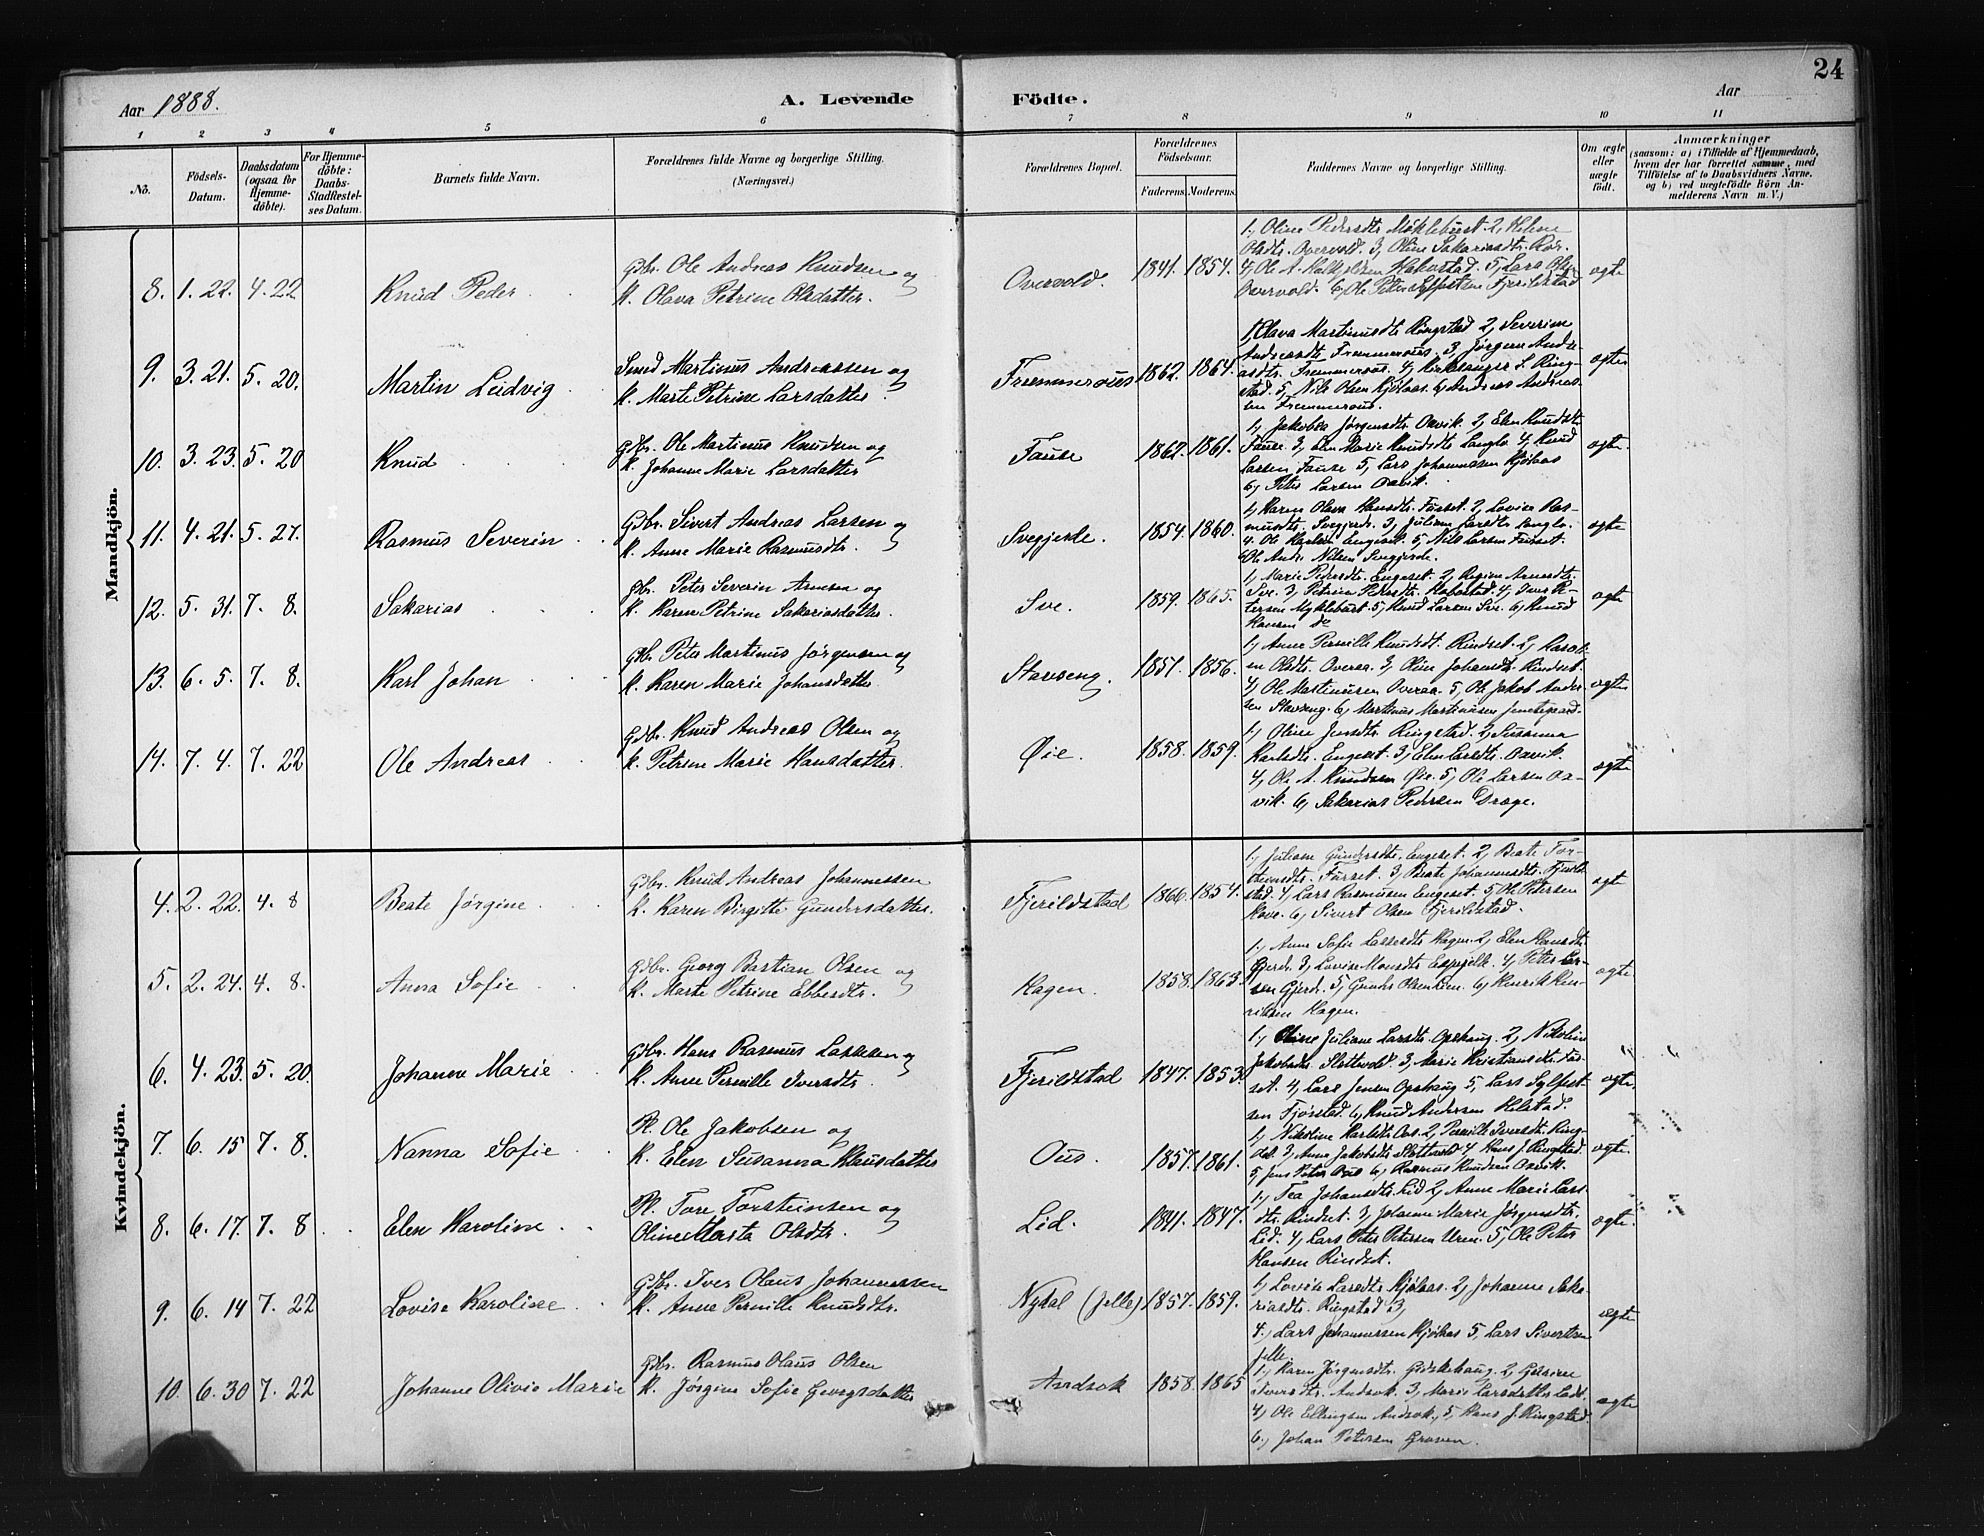 24
Aar 1888.
A. Levende Födte.
Aar
1 2 3 4 5 6 7 8 9 10 11
No.
Födsels-Datum.
Daabsdatum (ogsaa for Hjemme-döbte).
For Hjemme-döbte: Daabs-Stadfæstel-ses Datum.
Barnets fulde Navn.
Forældrenes fulde Navne og borgerlige Stilling. (Næringsvei.)
Forældrenes Bopæl.
Forældrenes Födselsaar.
Faderens. Moderens.
Faddernes Navne og borgerlige Stilling.
Om ægte eller uægte födt.
Anmærkninger
(saasom: a) i Tilfælde af Hjemmedaab,
hvem der har forrettet samme, med
Tilföielse af to Daabsvidners Navne.
og b) ved uægtefödte Börn An-
melderens Navn m. V.)
Mandkjön.
8. 1. 22. 4. 22 Knud Peder
Gdbr. Ole Andreas Knudsen og
K. Olava Petrine Olsdatter.
Overvold. 1841. 1854.
1, Oline Pedersdtr Myklebust 2, Helene
Olsdtr. Overvold. 3, Oline Sakariasdtr.
Overvold. 6, Ole Peter Fjerildstad
ægte
9. 3. 21. 5. 20. Martin Ludvig
Smed Martinus Andreassen og
K. Marte Petrine Larsdatter
Fremmerous 1862. 1864.
1, Olava Martinusdtr Ringstad 2, Severine
Andreasdtr. Fremmerous. 3, Jörgen Andr-
asdtr. Fremmerous. 4, Kirkesanger S. Ring-
stad. 5, Nils Olsen Kjölaas. 6, Andreas Andreas-
sen Fremmerous.
ægte
10. 3. 23. 5. 20 Knud
Gdbr. Ole Martinus Knudsen og
K. Johanne Marie Larsdatter
Fause 1862. 1861.
1, Jakobba Jörgensdtr. Oavik. 2, Elen Knudsdtr
Fause 3, Marie Knudsdtr Langlo 4, Knud
Larsen Fause 5, Lars Johannessen Kjölaas
6, Peter Larsen Oavik.
ægte.
11. 4. 21. 5. 27. Rasmus Severin
Gdbr. Sivert Andreas Larsen og
K. Anne Marie Rasmusdtr.
Svegjerde. 1854. 1860.
1, Karen Olava Hansdtr. Furset. 2, Lovise Ras-
musdtr. Svegjerde. 3, Juliane Larsdtr Langlo.
4. Ole Karlsen Engeset. 5, Nils Larsen Furset.
6, Ole Andr. Nilsen Svegjerde.
ægte
12. 5. 31. 7. 8. Sakarias
Gbr. Peter Severin Arnesen og
K. Karen Petrine Sakariasdatter.
Sve. 1859. 1865.
1, Marie Pedersdtr. Engeset. 2, Regine Arnesdtr.
Sve. 3, Petrine Pedersdtr. Habostad. 4, Iver Pe-
tersen Myklebust. 5, Knud Larsen Sve. 6, Knud
Hansen do
ægte
13. 6. 5. 7. 8. Karl Johan
Gbr. Peter Martinus Jörgensen og
K. Karen Marie Johansdatter
Stavseng. 1851. 1856.
1, Anne Pernille Knudsdtr. Rindset. 2,
Olsdtr. Overaa. 3, Oline Johansdtr. Rindset.
4, Ole Martinusen Overaa. 5, Ole Jakob Ander-
sen Stavseng. 6, Martinus Martinusen
ægte
14. 7. 4. 7. 22 Ole Andreas
Gdbr. Knud Andreas Olsen og
K. Petrine Marie Hansdatter.
Øie. 1858. 1859.
1, Oline Jensdtr. Ringstad. 2, Susanna
Karlsdtr. Engeset. 3, Elen Larsdtr. Oavik.
4, Ole A. Knudsen Øie. 5, Ole Larsen Oa-
vik. 6, Sakarias Pedersen Drage.
ægte
Kvindekjön.
4. 2. 22. 4. 8 Beate Jörgine
Gdbr. Knud Andreas Johannessen
K. Karen Birgitte Gundersdatter.
Fjerildstad 1866. 1854.
1, Juliane Gundersdtr. Engeset. 2, Beate Tor-
Furset. 3, Beate Johannesdtr. Fjerild-
stad. 4, Lars Rasmusen Engeset. 5, Ole Petersen
6, Sivert Olsen Fjerildstad.
ægte
5. 2. 24. 4. 8. Anna Sofie
Gdbr. Georg Bastian Olsen og
K. Marte Petrine Ebbesdtr.
Hagen. 1858. 1863.
1, Anne Sofie Lassesdtr Hagen. 2, Elen Hansdtr.
Gjerde. 3, Lovise Monsdtr. 4, Petter Lar-
sen Gjerde. 5, 6, Henrik Hen-
riksen Hagen.
ægte
6. 4. 23. 5. 20. Johanne Marie
Gdbr. Hans Rasmus Lassesen og
K. Anne Pernille Iversdtr.
Fjerildstad 1847. 1853.
1, Oline Juliane Larsdtr. Opshaug. 2, Nikoline
Jakobsdtr. Slottvold. 3, Marie Kristiansdtr. Fur-
set. 4, Lars Jensen Opshaug 5, Lars Sylfest-
sen Fjörstad. 6, Knud Andersen Helstad.
ægte.
7. 6. 15 7. 8. Nanna Sofie
Pl. Ole Jakobsen og
K. Elen Susanna Klausdatter
Ous. 1857. 1861.
1, Nikoline Karlsdtr. Ous. 2, Pernille Iversdtr. Ring-
3, Anna Jakobsdtr Slottvold 4, Hans J. Ringstad.
5, Jens Peter Ous 6, Rasmus Knudsen Oavik.
ægte.
8. 6. 17. 7. 8 Elen Karoline
Pl. Tore Torsteinsen og
Oline Marta Olsdtr.
Lid. 1841. 1847.
1, Tea Johansdtr. Lid 2, Anne Marie Lars-
dtr. Rindset. 3, Johanne Marie Jörgensdtr.
Lid. 4, Lars Peter Petersen Uren. 5, Ole Peter
Hansen Rindset.
ægte.
9. 6. 14 7. 22 Lovise Karoline
Gdbr. Iver Olaus Johannessen
K. Anne Pernille Knudsdtr.
Nydal (Jelle) 1857. 1859.
1, Lovise Larsdtr Kjölaas. 2, Johanne Saka-
riasdtr. Ringstad 3,
4, Lars Johannessen Kjölaas 5, Lars Sivertsen
Jelle.
ægte
10. 6. 30 7. 22 Johanne Olivie Marie
Gdbr. Rasmus Olaus Olsen
K. Jörgine Sofie Georgsdatter
Andsok 1858. 1865
1, Karen Jörgensdtr. Gidskehaug. 2,
Iversdtr. Andsok. 3, Marie Larsdatter
4, Ole Ellingsen Andsok. 5, Hans J. Ringstad.
6, Johan Petersen Groven.
ægte